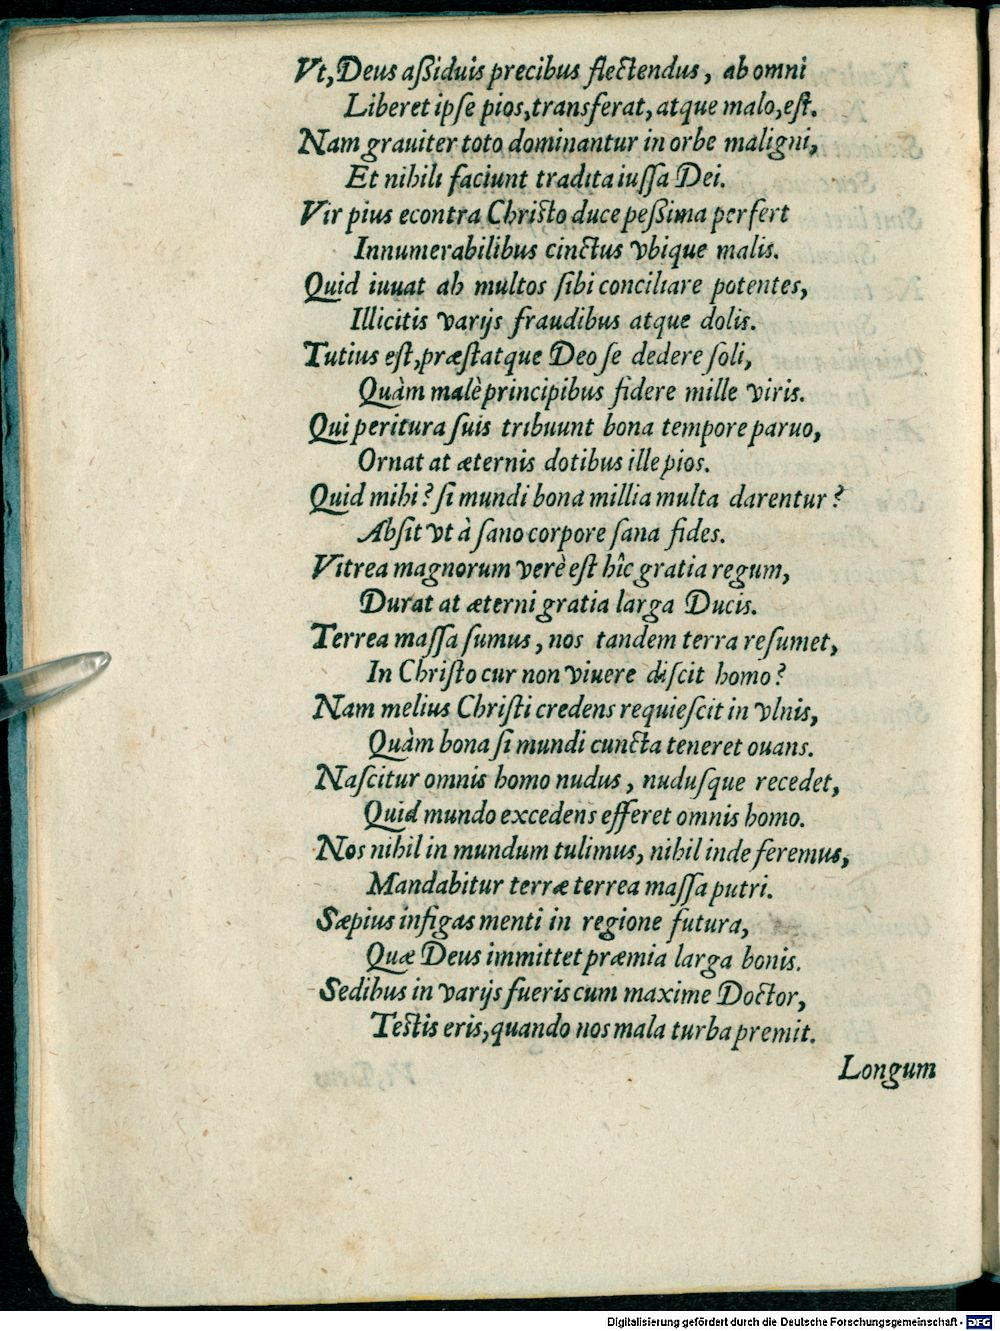 Vt, Deus aßiduis precibus flectendus, ab omni
Liberet ipſe pios, transferat, atque malo, eſt.
Nam grauiter toto dominantur in orbe maligni,
Et nihili faciunt tradita iuſſa Dei.
Vir pius econtra Chriſto duce peßima perfert
Innumerabilibus cinctus vbique malis.
Quid iuuat ah multos ſibi conciliare potentes,
Illicitis varijs fraudibus atque dolis.
Tutius eſt, præſtatque Deo ſe dedere ſoli,
Quàm malè principibus fidere mille viris.
Qui peritura ſuis tribuunt bona tempore paruo,
Ornat at æternis dotibus ille pios.
Quid mihi? ſi mundi bona millia multa darentur?
Abſit vt à ſano corpore ſana fides.
Vitrea magnorum verè eſt hîc gratia regum,
Durat at æterni gratia larga Ducis.
Terrea maſſa ſumus, nos tandem terra reſumet,
In Chriſto cur non viuere diſcit homo?
Nam melius Chriſti credens requieſcit in vlnis,
Quàm bona ſi mundi cuncta teneret ouans.
Naſcitur omnis homo nudus, nuduſque recedet,
Quid mundo excedens efferet omnis homo.
Nos nihil in mundum tulimus, nihil inde feremus,
Mandabitur terræ terrea maſſa putri.
Sæpius infigas menti in regione futura,
Quæ Deus immittet præmia larga bonis.
Sedibus in varijs fueris cum maxime Doctor,
Teſtis eris, quando nos mala turba premit.
Longum
Digitalisierung gefördert durch die Deutsche Forschungsgemeinschaft - DFG